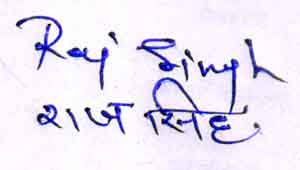 Raj Singh
राज सिंह